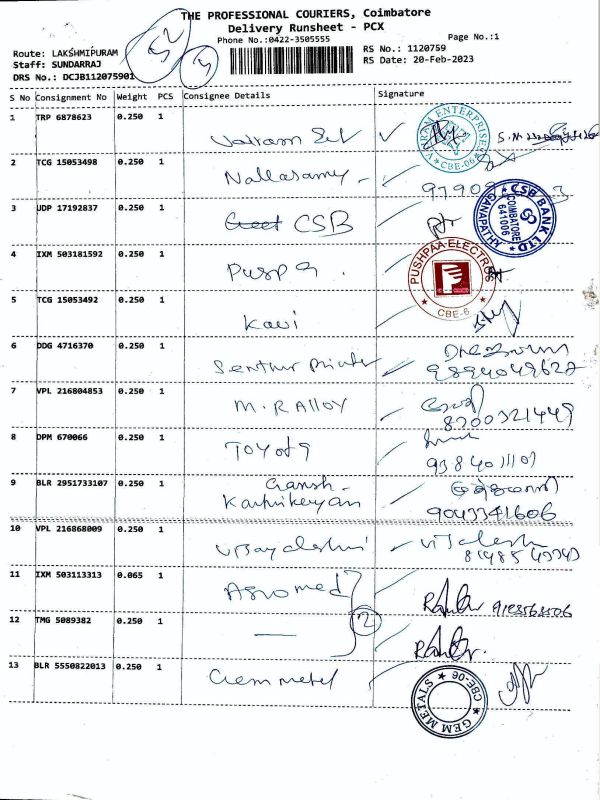 THE PROFESSIONAL COURIERS, Coimbatore
Delivery Runsheet - PCX
Phone No.:0422-3505555
Page No.:1
Route: LAKSHMIPURAM
Staff: SUNDARRAJ
DRS No.: DCJB112075901
RS No.: 1120759
RS Date: 20-Feb-2023
52
S No Consignment No Weight PCS Consignee Details Signature
1 TRP 6878623 0.250 1
VAIRAM ENTERPRISES CBE-06
2 TCG 15053498 0.250 1 Nallasamy
3 UDP 17192837 0.250 1 CSB
CSB BANK LTD GANAPATHY COIMBATORE 641006
4 IXM 503181592 0.250 1 Puspa
PUSHPAA ELECTROS CBE-6
5 TCG 15053492 0.250 1 Kavi
6 DDG 4716370 0.250 1 Senthur Printer
9894049627
7 VPL 216804853 0.250 1 M.R Alloy
8200321449
8 DPM 670066 0.250 1 Toyota
9 BLR 2951733107 0.250 1 Karthikeyan
9043341606
10 VPL 216868009 0.250 1
11 IXM 503113313 0.065 1 Agromed
2
12 TMG 5089382 0.250 1 —
13 BLR 5550822013 0.250 1 Gem metal
GEM METALS CBE-06